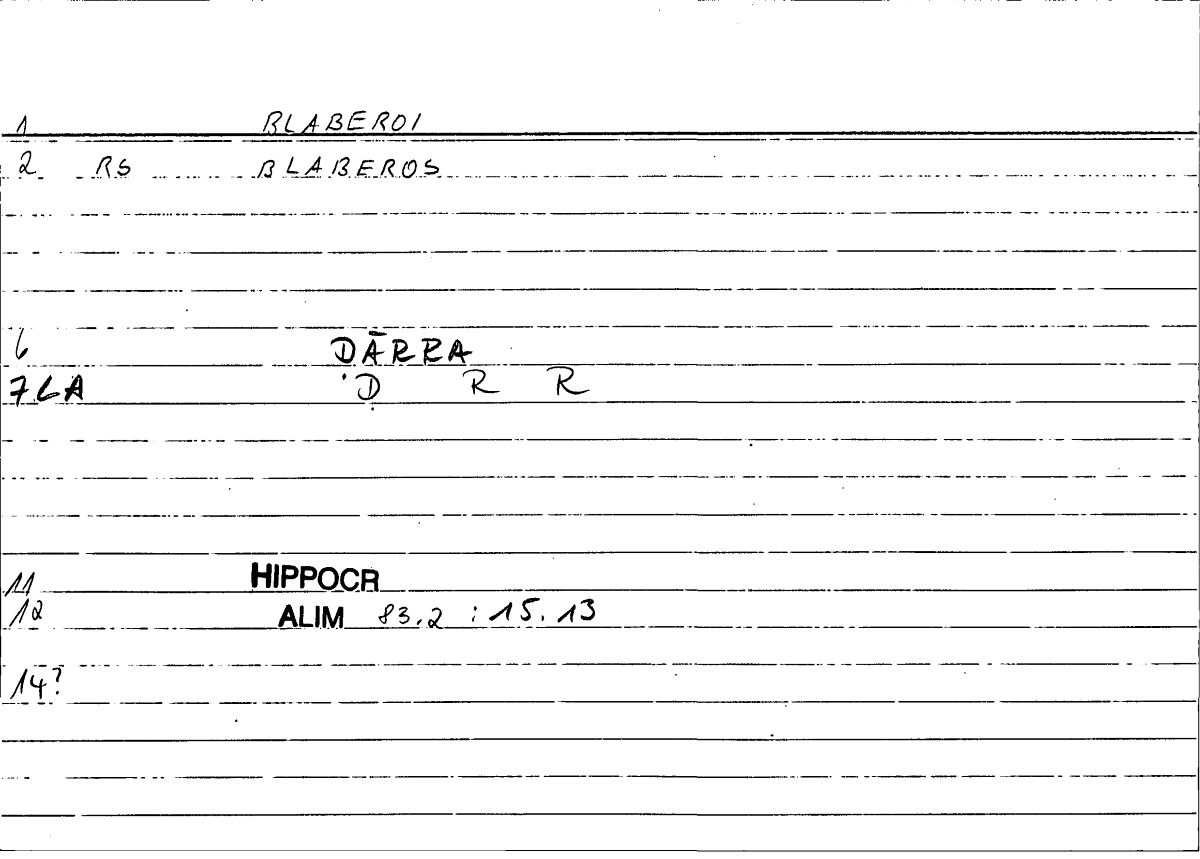 1 BLABEROI
2 RS BLABEROS
6 DĀRRA
7 LA D R R
11 HIPPOCR
12 ALIM 83.2 : 15.13
14?